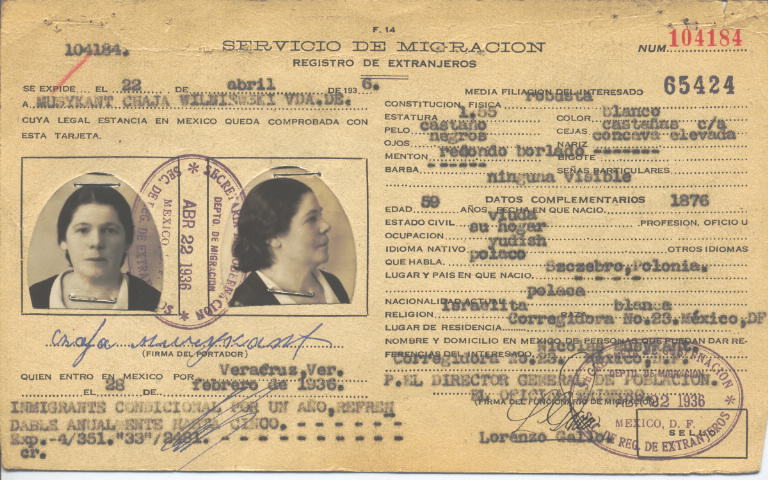 F. 14
104184.
SERVICIO DE MIGRACION
NUM. 104184
REGISTRO DE EXTRANJEROS
SE EXPIDE EL 22 DE abril DE 193 6.
A MUSYKANT CHAJA WILNISWSKI VDA.DE.
CUYA LEGAL ESTANCIA EN MEXICO QUEDA COMPROBADA CON
ESTA TARJETA.
MEDIA FILIACION DEL INTERESADO 65424
CONSTITUCION FISICA robusta
ESTATURA 1.55 COLOR blanco
PELO castaño CEJAS castañas c/a
OJOS negros NARIZ concava elevada
MENTON redondo borlado BIGOTE -------
BARBA ------ SEÑAS PARTICULARES
ninguna visible
DATOS COMPLEMENTARIOS
EDAD 59 AÑOS, FECHA EN QUE NACIO 1876
ESTADO CIVIL viuda PROFESION, OFICIO U
OCUPACION su hogar
IDIOMA NATIVO yudish OTROS IDIOMAS
QUE HABLA. polaco
LUGAR Y PAIS EN QUE NACIO. Szczebro,Polonia.
NACIONALIDAD ACTUAL polaca
RELIGION Israelita RAZA blanca
LUGAR DE RESIDENCIA Corregidora No.23.México,DF
NOMBRE Y DOMICILIO EN MEXICO DE PERSONAS QUE PUEDAN DAR RE-
FERENCIAS DEL INTERESADO Nicolas
Corregidora No.23. México,
P.EL DIRECTOR GENERAL DE POBLACION.
EL OFICIAL
(FIRMA DEL FUNCIONARIO DE MIGRACION)
Lorenzo Gallo.
SELLO
SECRETARIA GOBERNACION
DEPTO. DE MIGRACION
ABR 22 1936
MEXICO
SEC. DE REG. DE EXTRANJEROS
Chaja Musykant
(FIRMA DEL PORTADOR)
QUIEN ENTRO EN MEXICO POR Veracruz,Ver.
EL 28 DE febrero de 1936.
INMIGRANTE CONDICIONAL POR UN AÑO,REFREN
DABLE ANUALMENTE HASTA CINCO. - - - - - -
Exp.-4/351."33"/2481. - - - - - -
cr.
GOBERNACION
DEPTO. DE MIGRACION
22 1936
MEXICO, D. F.
DE REG. DE EXTRANJEROS